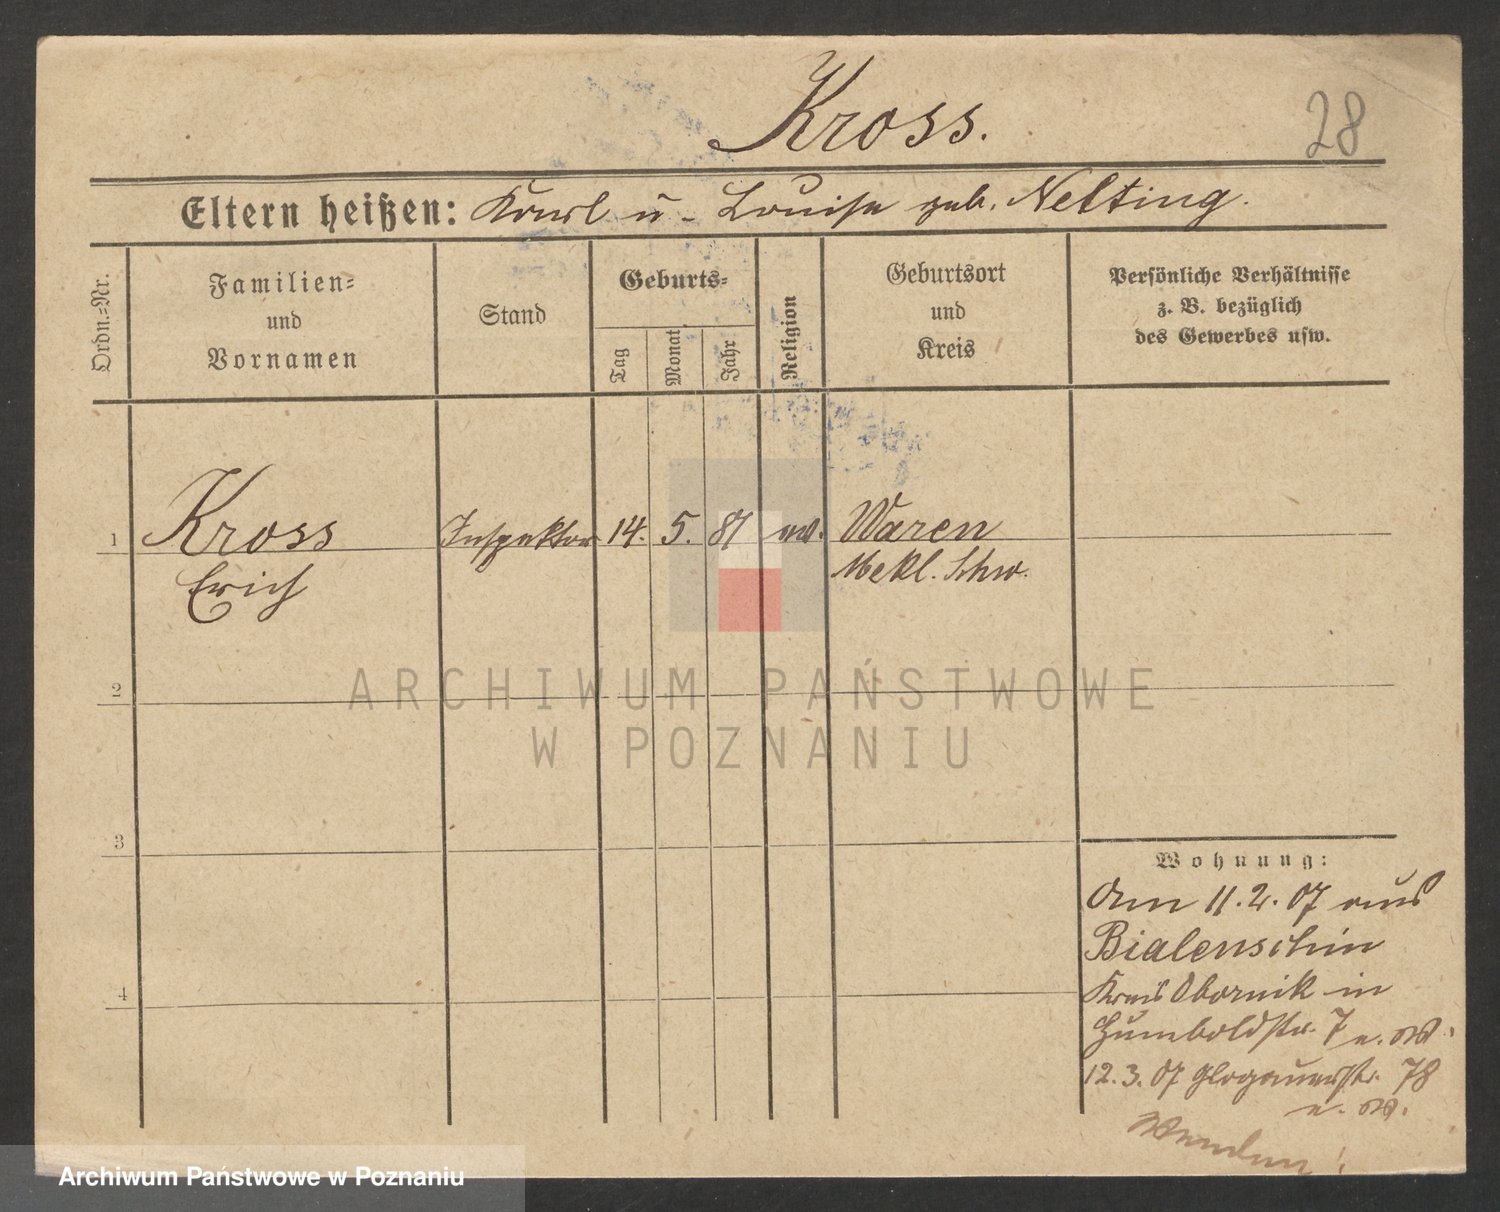 Kross.
28
Eltern heißen: Karl u. Louise geb. Nelting.
Ordn.=Nr.
Familien=
und
Vornamen
Stand
Geburts=
Tag
Monat
Jahr
Religion
Geburtsort
und
Kreis
Persönliche Verhältnisse
z. B. bezüglich
des Gewerbes usw.
1 Kross Inspektor 14. 5. 81 ev. Waren
Erich Mekl. Schw.
2
3
4
Wohnung:
Am 11.2.07 aus
Bialenschin
Kreis Obornik in
Humboldstr. 7
12.3.07 Glogauerstr. 78
Wenden!
ARCHIWUM PAŃSTWOWE
W POZNANIU
Archiwum Państwowe w Poznaniu